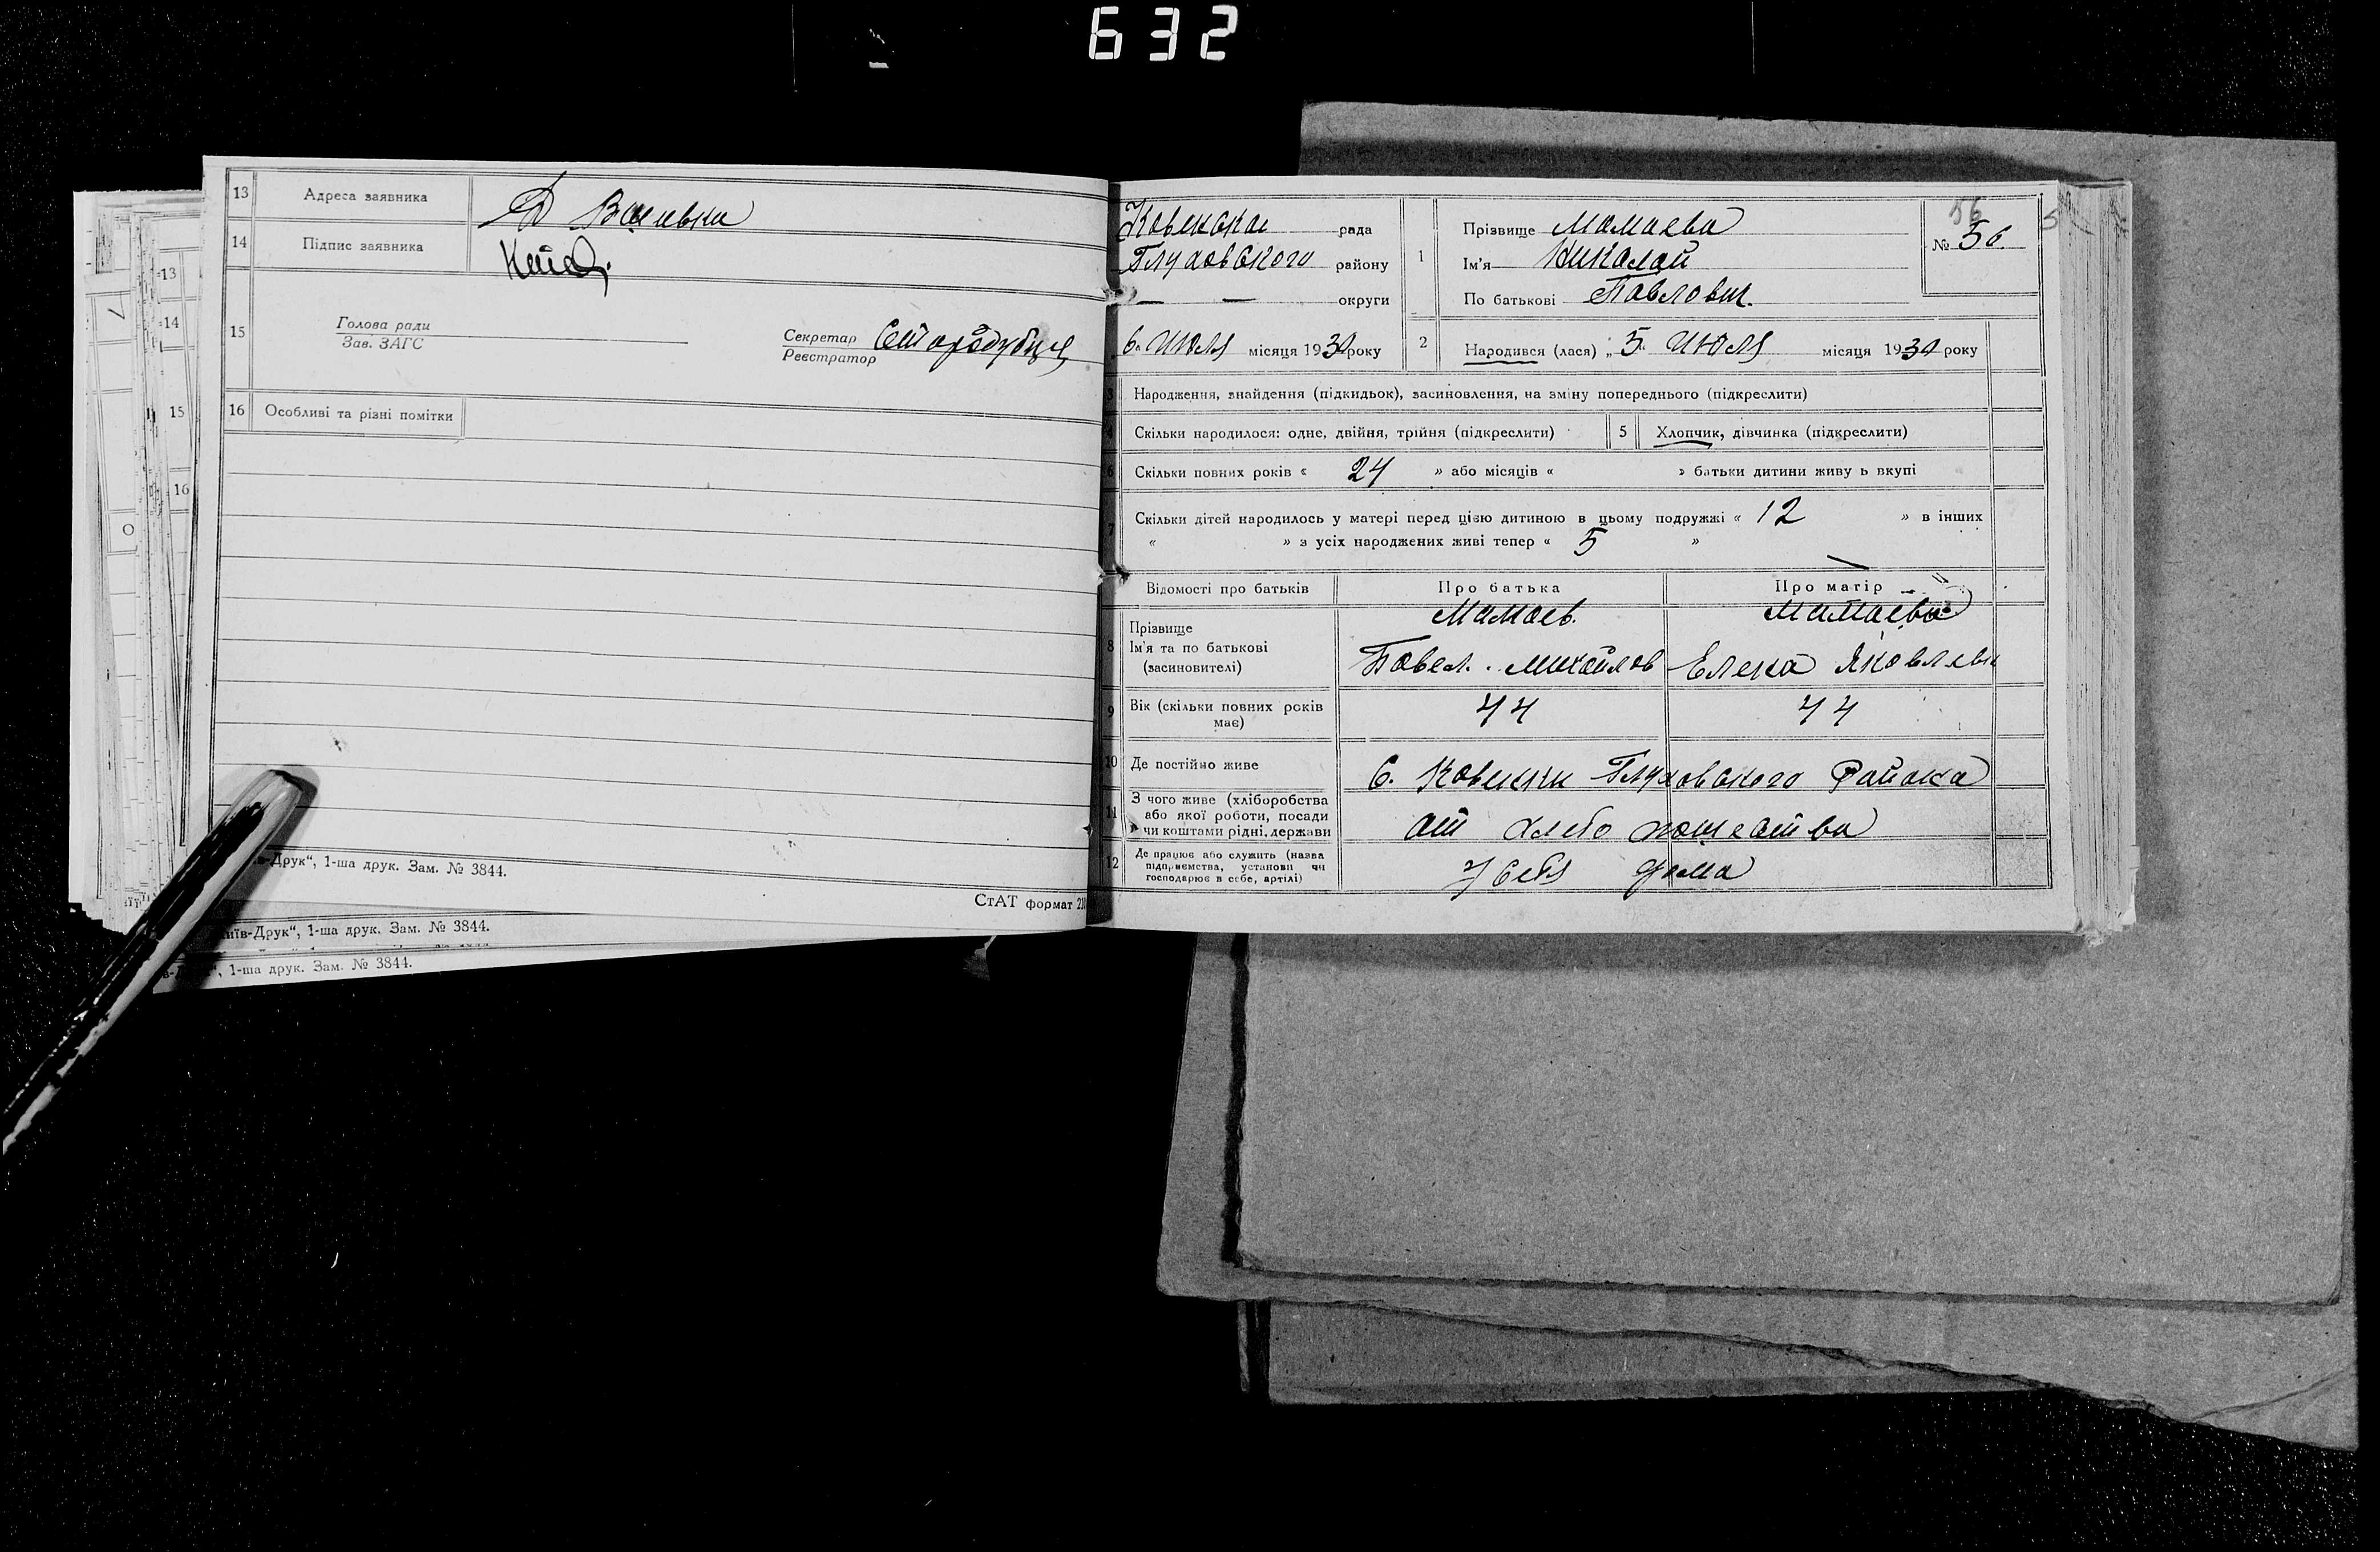 632
13 Адреса заявника Д Вашевка
14 Підпис заявника
15 Голова ради
Зав. ЗАГС
Секретар
Реєстратор
16 Особливі та різні помітки
-Друк“, 1-ша друк. Зам. № 3844.
СтАТ формат 210
иїв-Друк“, 1-ша друк. Зам. № 3844.
1-ша друк. Зам. № 3844.
13
14
15
16
56
Ковенская рада
Глуховского району
— — округи
6. Июля місяця 1930 року
1 Прізвище Мамаева
Ім'я Николай
По батькові Павлович.
№ 56.
2 Народився (лася) „5“ Июля місяця 1930 року
3 Народження, знайдення (підкидьок), засиновлення, на зміну попереднього (підкреслити)
4 Скільки народилося: одне, двійня, трійня (підкреслити) 5 Хлопчик, дівчинка (підкреслити)
6 Скільки повних років « 24 » або місяців « » батьки дитини живу ь вкупі
7 Скільки дітей народилось у матері перед цією дитиною в цьому подружжі « 12 » в інших
« » з усіх народжених живі тепер « 5 »
Відомості про батьків Про батька Про матір
8 Прізвище Мамаев. Мамаева
Ім'я та по батькові
(засиновителі) Павел. Михайлов Елена Яковлевн
9 Вік (скільки повних років
має) 44 44
10 Де постійно живе С. Ковенки Глуховского Района
11 З чого живе (хліборобства
або якої роботи, посади
чи коштами рідні, держави от хлебо пашества
12 Де працює або служить (назва
підприємства, установи чи
господарює в себе, артілі) У себя дома